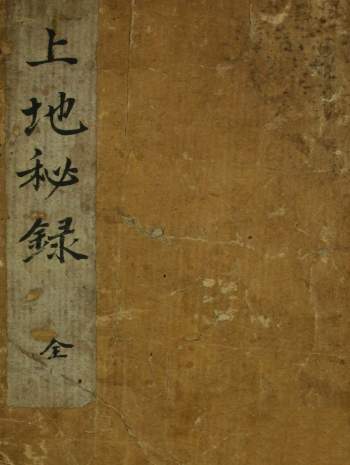 上地秘録 全